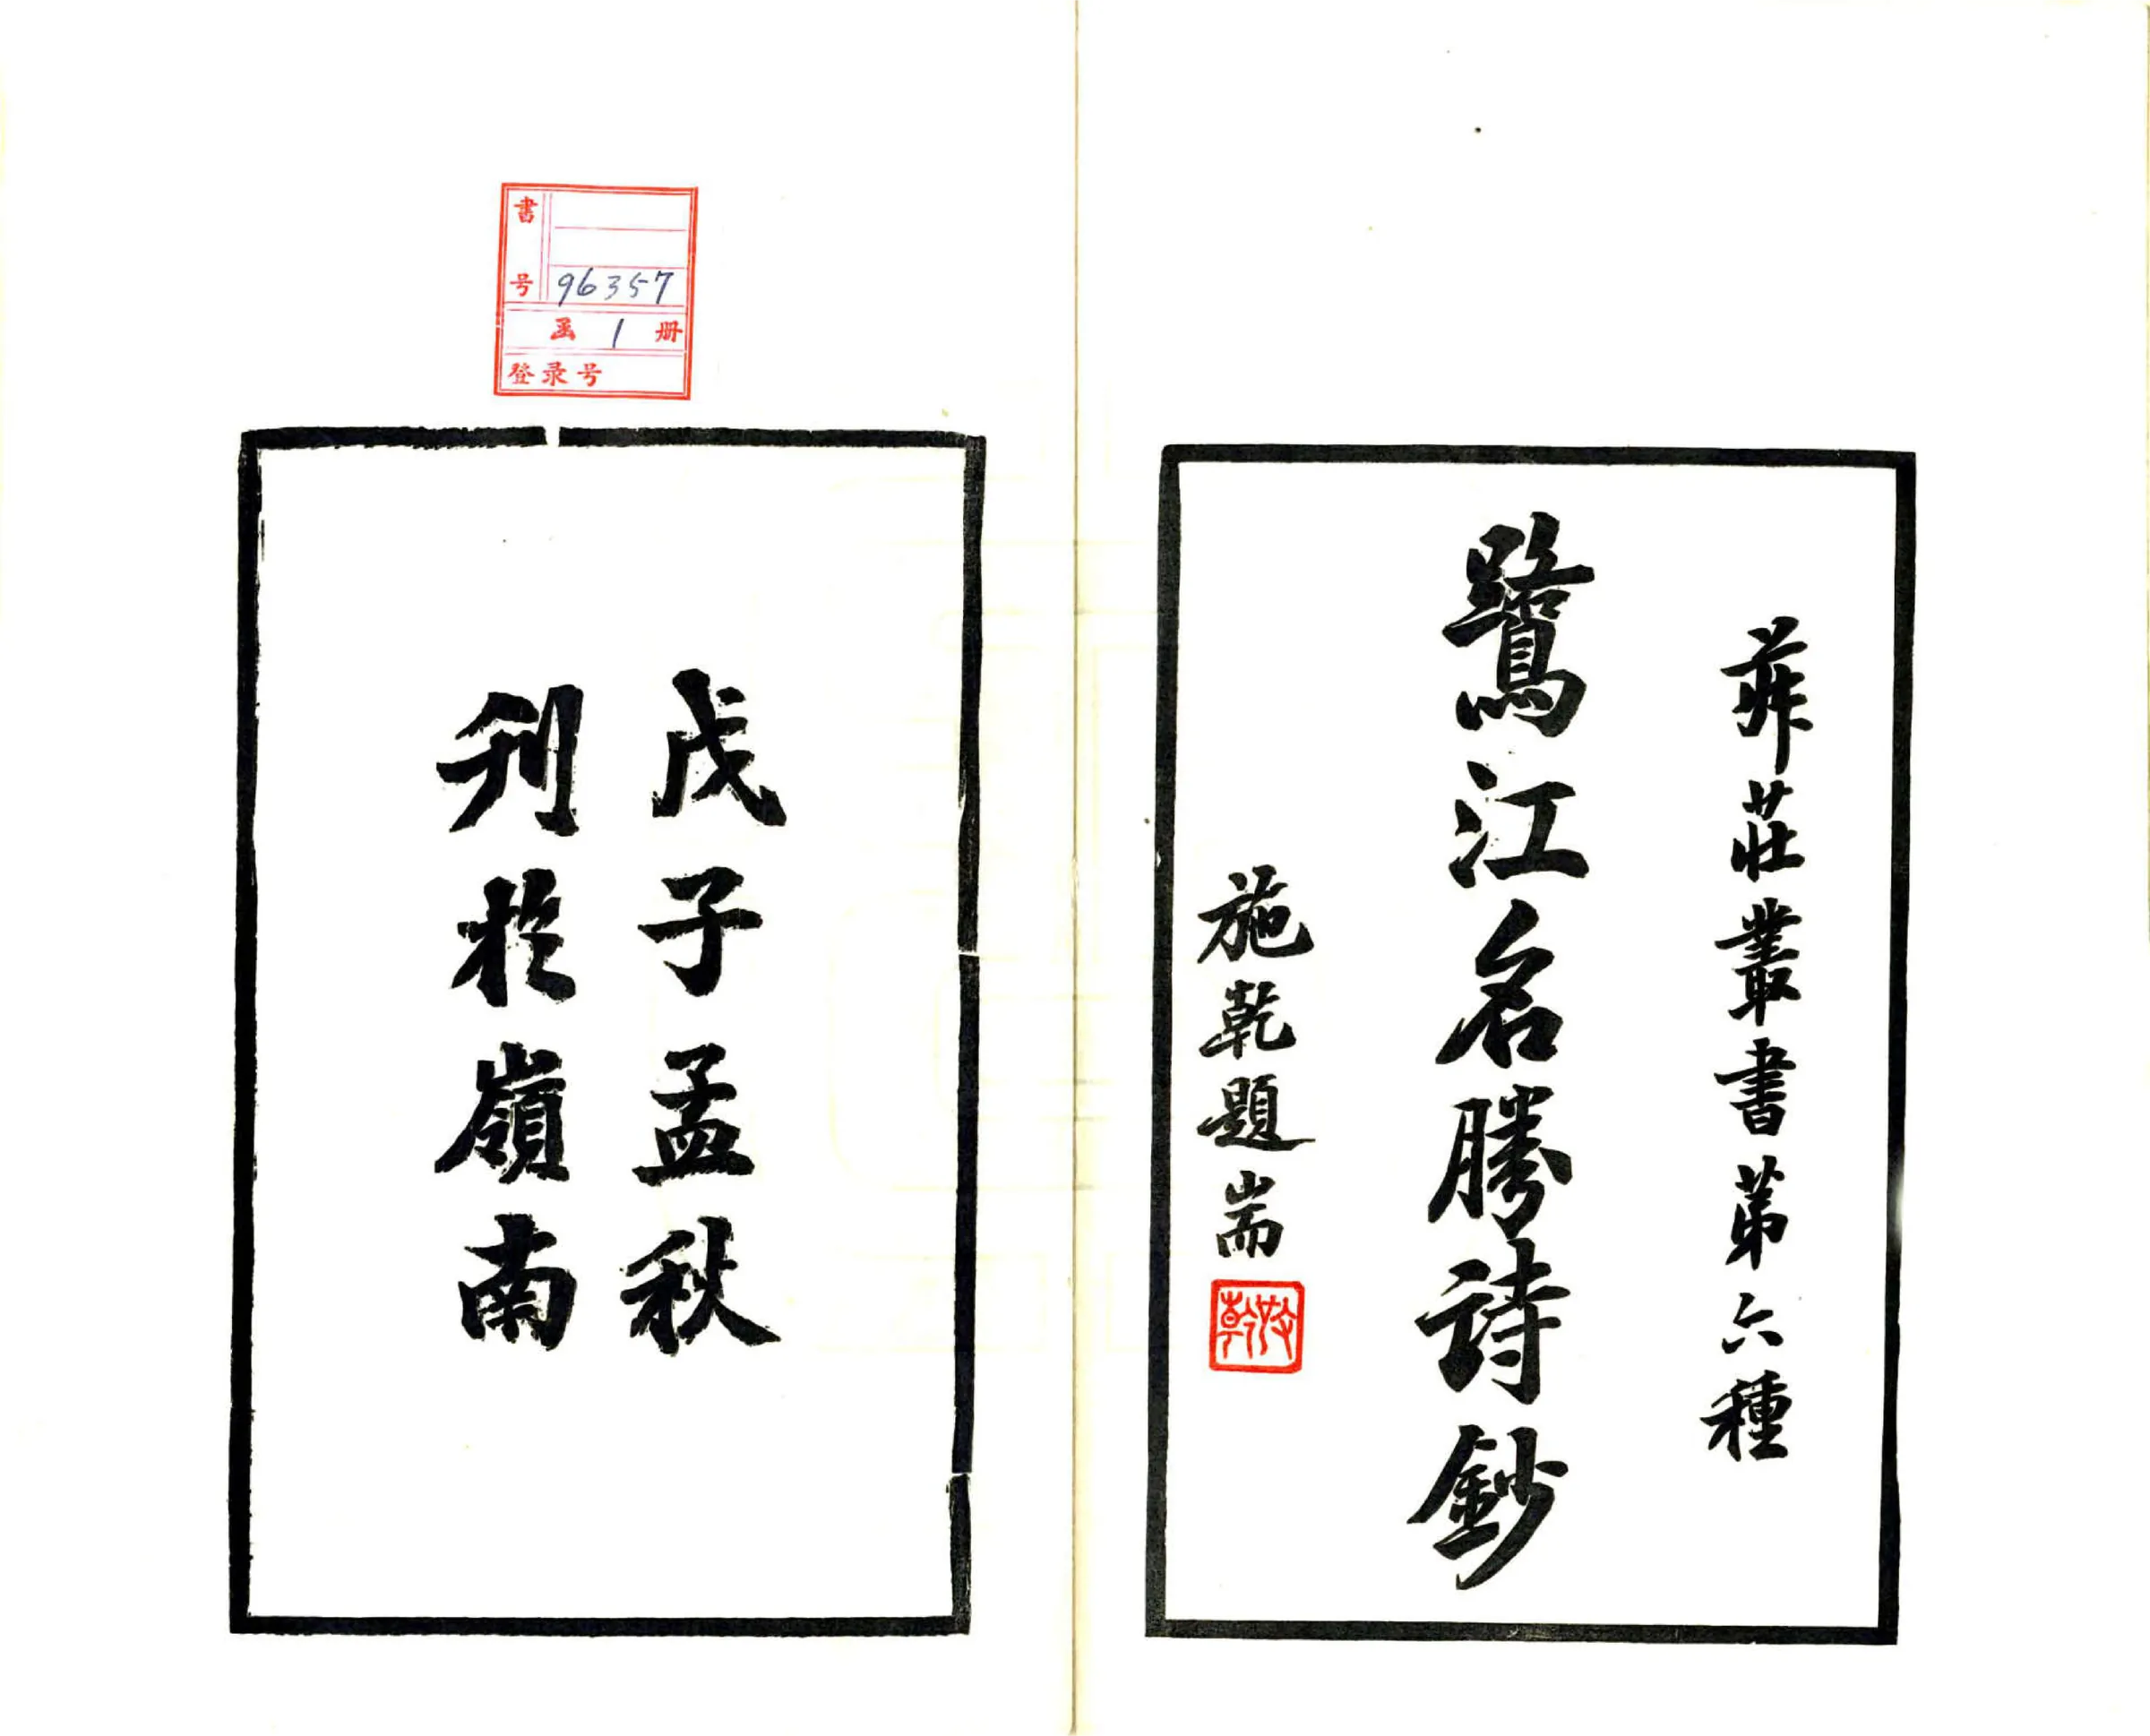 菽莊叢書第六種
鷺江名勝詩鈔
施乾題耑
施乾
戊子孟秋
刊於嶺南
書号 96357
函 1 册
登录号